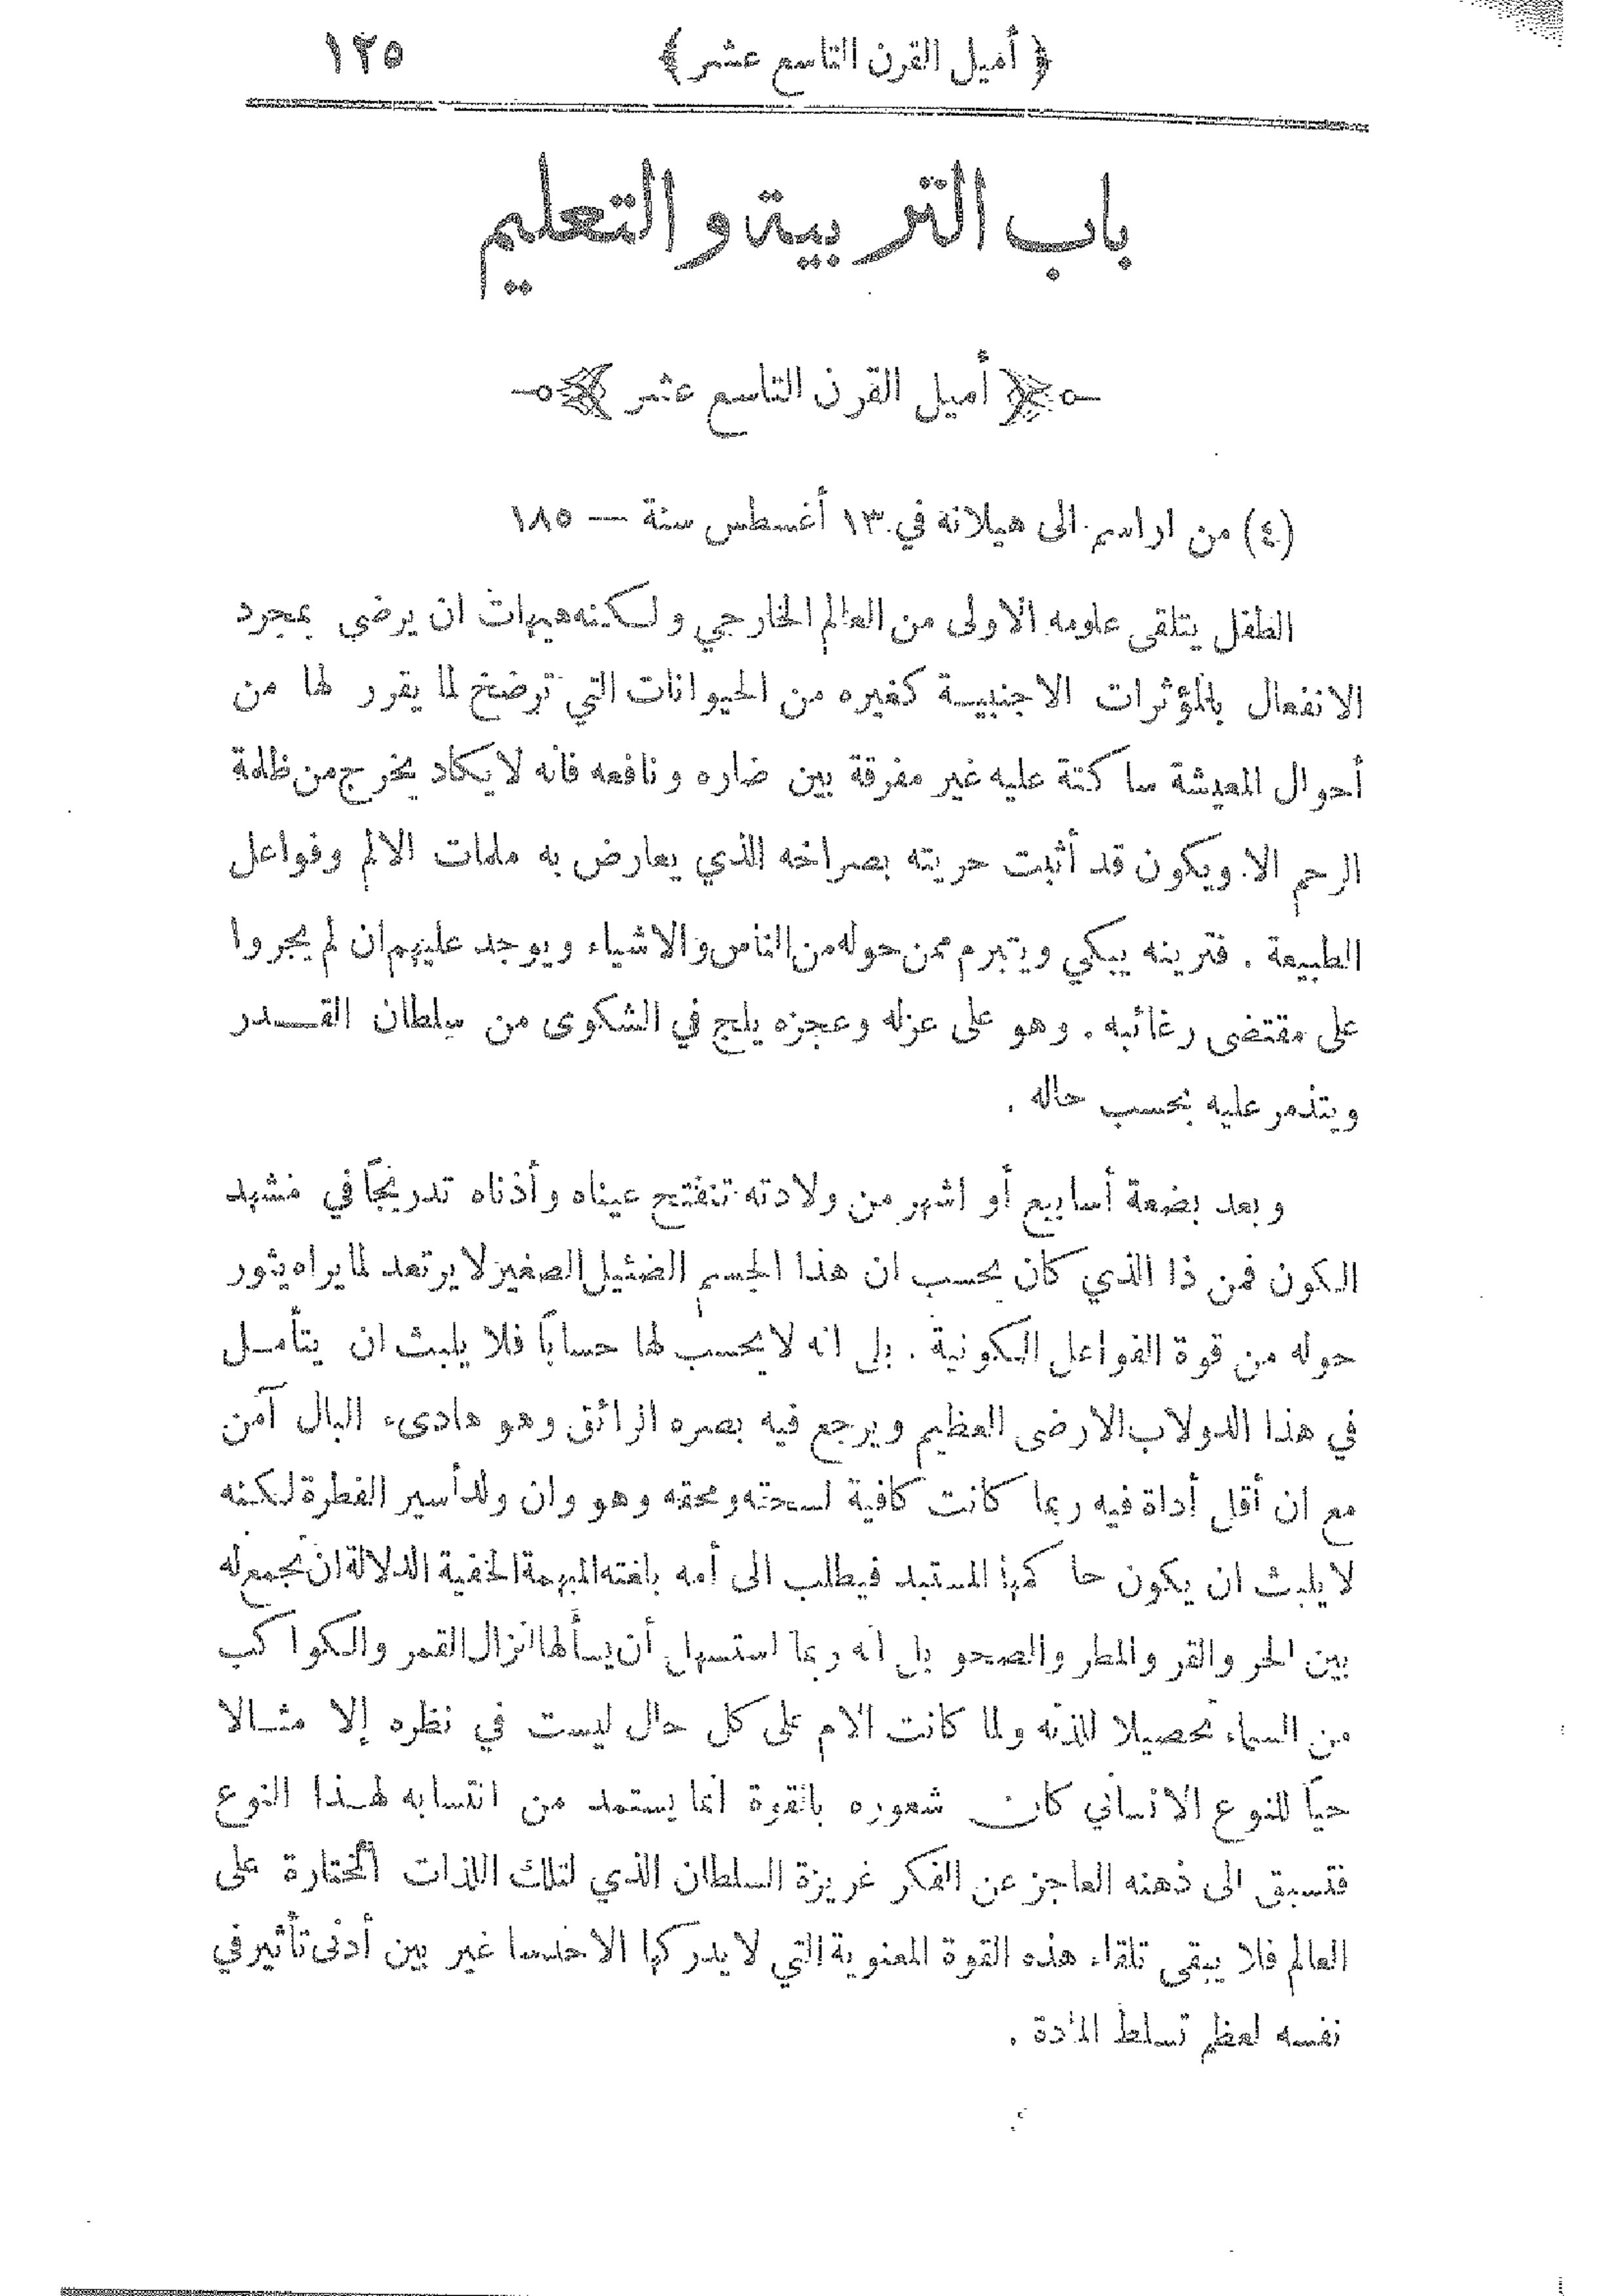 ﴿ أميل القرن التاسع عشر ﴾ ١٢٥
باب التربية والتعليم
﴿ أميل القرن التاسع عشر ﴾
(٤) من اراسم الى هيلانة في ١٣ أغسطس سنة — ١٨٥
الطفل يتلقى علومه الاولى من العالم الخارجي ولكنه هيهات ان يرضي بمجرد
الانفعال بالمؤثرات الاجنبية كغيره من الحيوانات التي ترضخ لما يقرر لها من
أحوال المعيشة ساكتة عليه غير مفرقة بين ضاره ونافعه فانه لا يكاد يخرج من ظلمة
الرحم الا ويكون قد أثبت حريته بصراخه الذي يعارض به ملمات الالم وفواعل
الطبيعة . فترينه يبكي ويتبرم ممن حوله من الناس والاشياء ويوجد عليهم ان لم يجروا
على مقتضى رغائبه . وهو على عزله وعجزه يلج في الشكوى من سلطان القدر
ويتذمر عليه بحسب حاله .
وبعد بضعة أسابيع أو اشهر من ولادته تنفتح عيناه وأذناه تدريجاً في مشهد
الكون فمن ذا الذي كان يحسب ان هذا الجسم الضئيل الصغير لا يرتعد لما يراه يثور
حوله من قوة الفواعل الكونية . بلى انه لا يحسب لها حساباً فلا يلبث ان يتأمل
في هذا الدولاب الارضى العظيم ويرجع فيه بصره الرائق وهو هادىء البال آمن
مع ان أقل أداة فيه ربما كانت كافية لسحته ومحقه وهو وان ولد أسير الفطرة لكنه
لا يلبث ان يكون حاكمها المستبد فيطلب الى أمه بلغته المبهمة الخفية الدلالة ان تجمع له
بين الحر والقر والمطر والصحو بل انه ربما استسهل أن يسألها انزال القمر والكواكب
من السماء تحصيلا للذته ولما كانت الام على كل حال ليست في نظره إلا مثالا
حياً للنوع الانساني كان شعوره بالقوة انما يستمد من انتسابه لهذا النوع
فتسبق الى ذهنه العاجز عن الفكر غريزة السلطان الذي لتلك اللذات المختارة على
العالم فلا يبقى تلقاء هذه القوة المعنوية التي لا يدركها الا حدسا غير بين أدنى تأثير في
نفسه لعظم تسلط المادة .